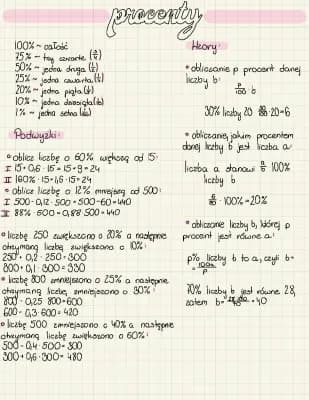 procenty
100% ~ całość
75% ~ trzy czwarte (3/4)
50% ~ jedna druga (1/2)
25% ~ jedna czwarta (1/4)
20% ~ jedna piąta (1/5)
10% ~ jedna dziesiąta (1/10)
1% ~ jedna setna (1/100)
Podwyżki:
• oblicz liczbę o 60% większą od 15:
I 15 + 0,6 · 15 = 15 + 9 = 24
II 160% · 15 = 1,6 · 15 = 24
• oblicz liczbę o 12% mniejszą od 500:
I 500 - 0,12 · 500 = 500 - 60 = 440
II 88% · 500 = 0,88 · 500 = 440
• liczbę 250 zwiększono o 20% a następnie
otrzymaną liczbę zwiększono o 10%:
250 + 0,2 · 250 = 300
300 + 0,1 · 300 = 330
• liczbę 800 zmniejszono o 25% a następnie
otrzymaną liczbę, zmniejszono o 30%:
800 - 0,25 · 800 = 600
600 - 0,3 · 600 = 420
• liczbę 500 zmniejszono o 40% a następnie
otrzymaną liczbę zwiększono o 60%:
500 - 0,4 · 500 = 300
300 + 0,6 · 300 = 480
Wzory:
• obliczanie p procent danej
liczby b:
p/100 · b
30% liczby 20 30/100 · 20 = 6
• obliczanie, jakim procentem
danej liczby b jest liczba a:
liczba a stanowi a/b · 100%
liczby b
· 100% = 20%
• obliczanie liczby b, której p
procent jest równe a:
p% liczby b to a, czyli b =
= 100a/p
70% liczby b jest równe 28,
zatem b = = 40